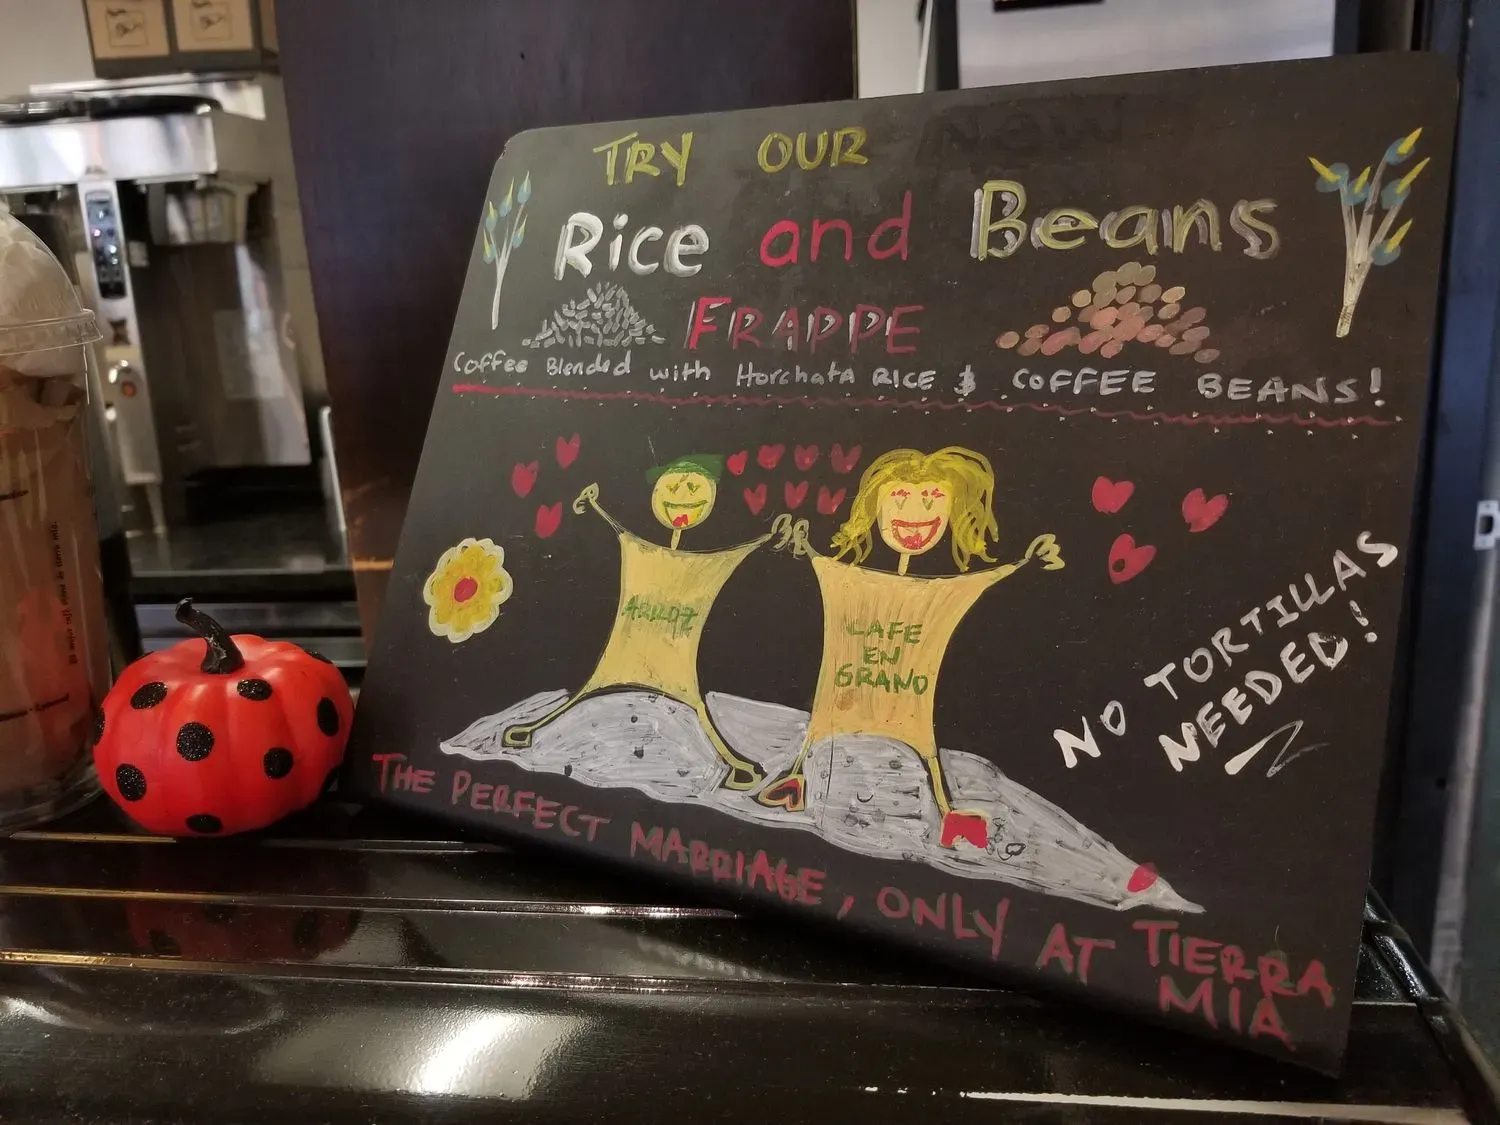 TRY OUR NEW
Rice and Beans
FRAPPE
Coffee Blended with Horchata RICE & COFFEE BEANS!
ARROZ
CAFE
EN
GRANO
NO TORTILLAS
NEEDED!
THE PERFECT MARRIAGE, ONLY AT TIERRA
MIA